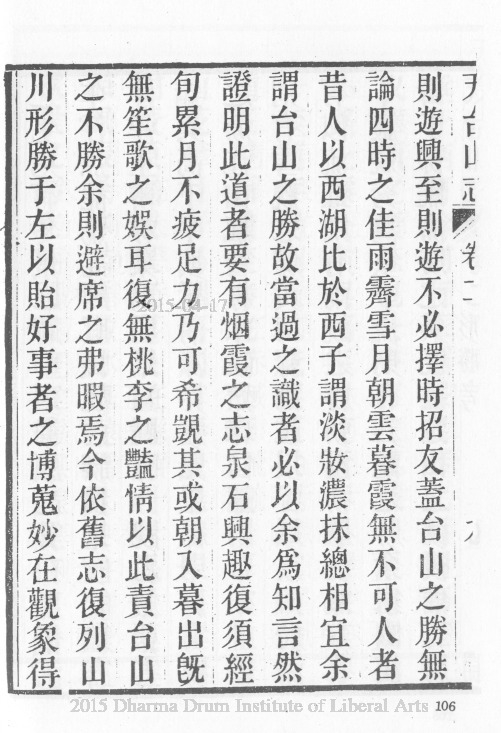 天台山志 卷二 九
則遊興至則遊不必擇時招友蓋台山之勝無
論四時之佳雨霽雪月朝雲暮霞無不可人者
昔人以西湖比於西子謂淡妝濃抹總相宜余
謂台山之勝故當過之識者必以余為知言然
證明此道者要有烟霞之志泉石興趣復須經
旬累月不疲足力乃可希覬其或朝入暮出旣
無笙歌之娛耳復無桃李之豔情以此責台山
之不勝余則避席之弗暇焉今依舊志復列山
川形勝于左以貽好事者之博蒐妙在觀象得
2015-04-17
2015 Dharma Drum Institute of Liberal Arts 106